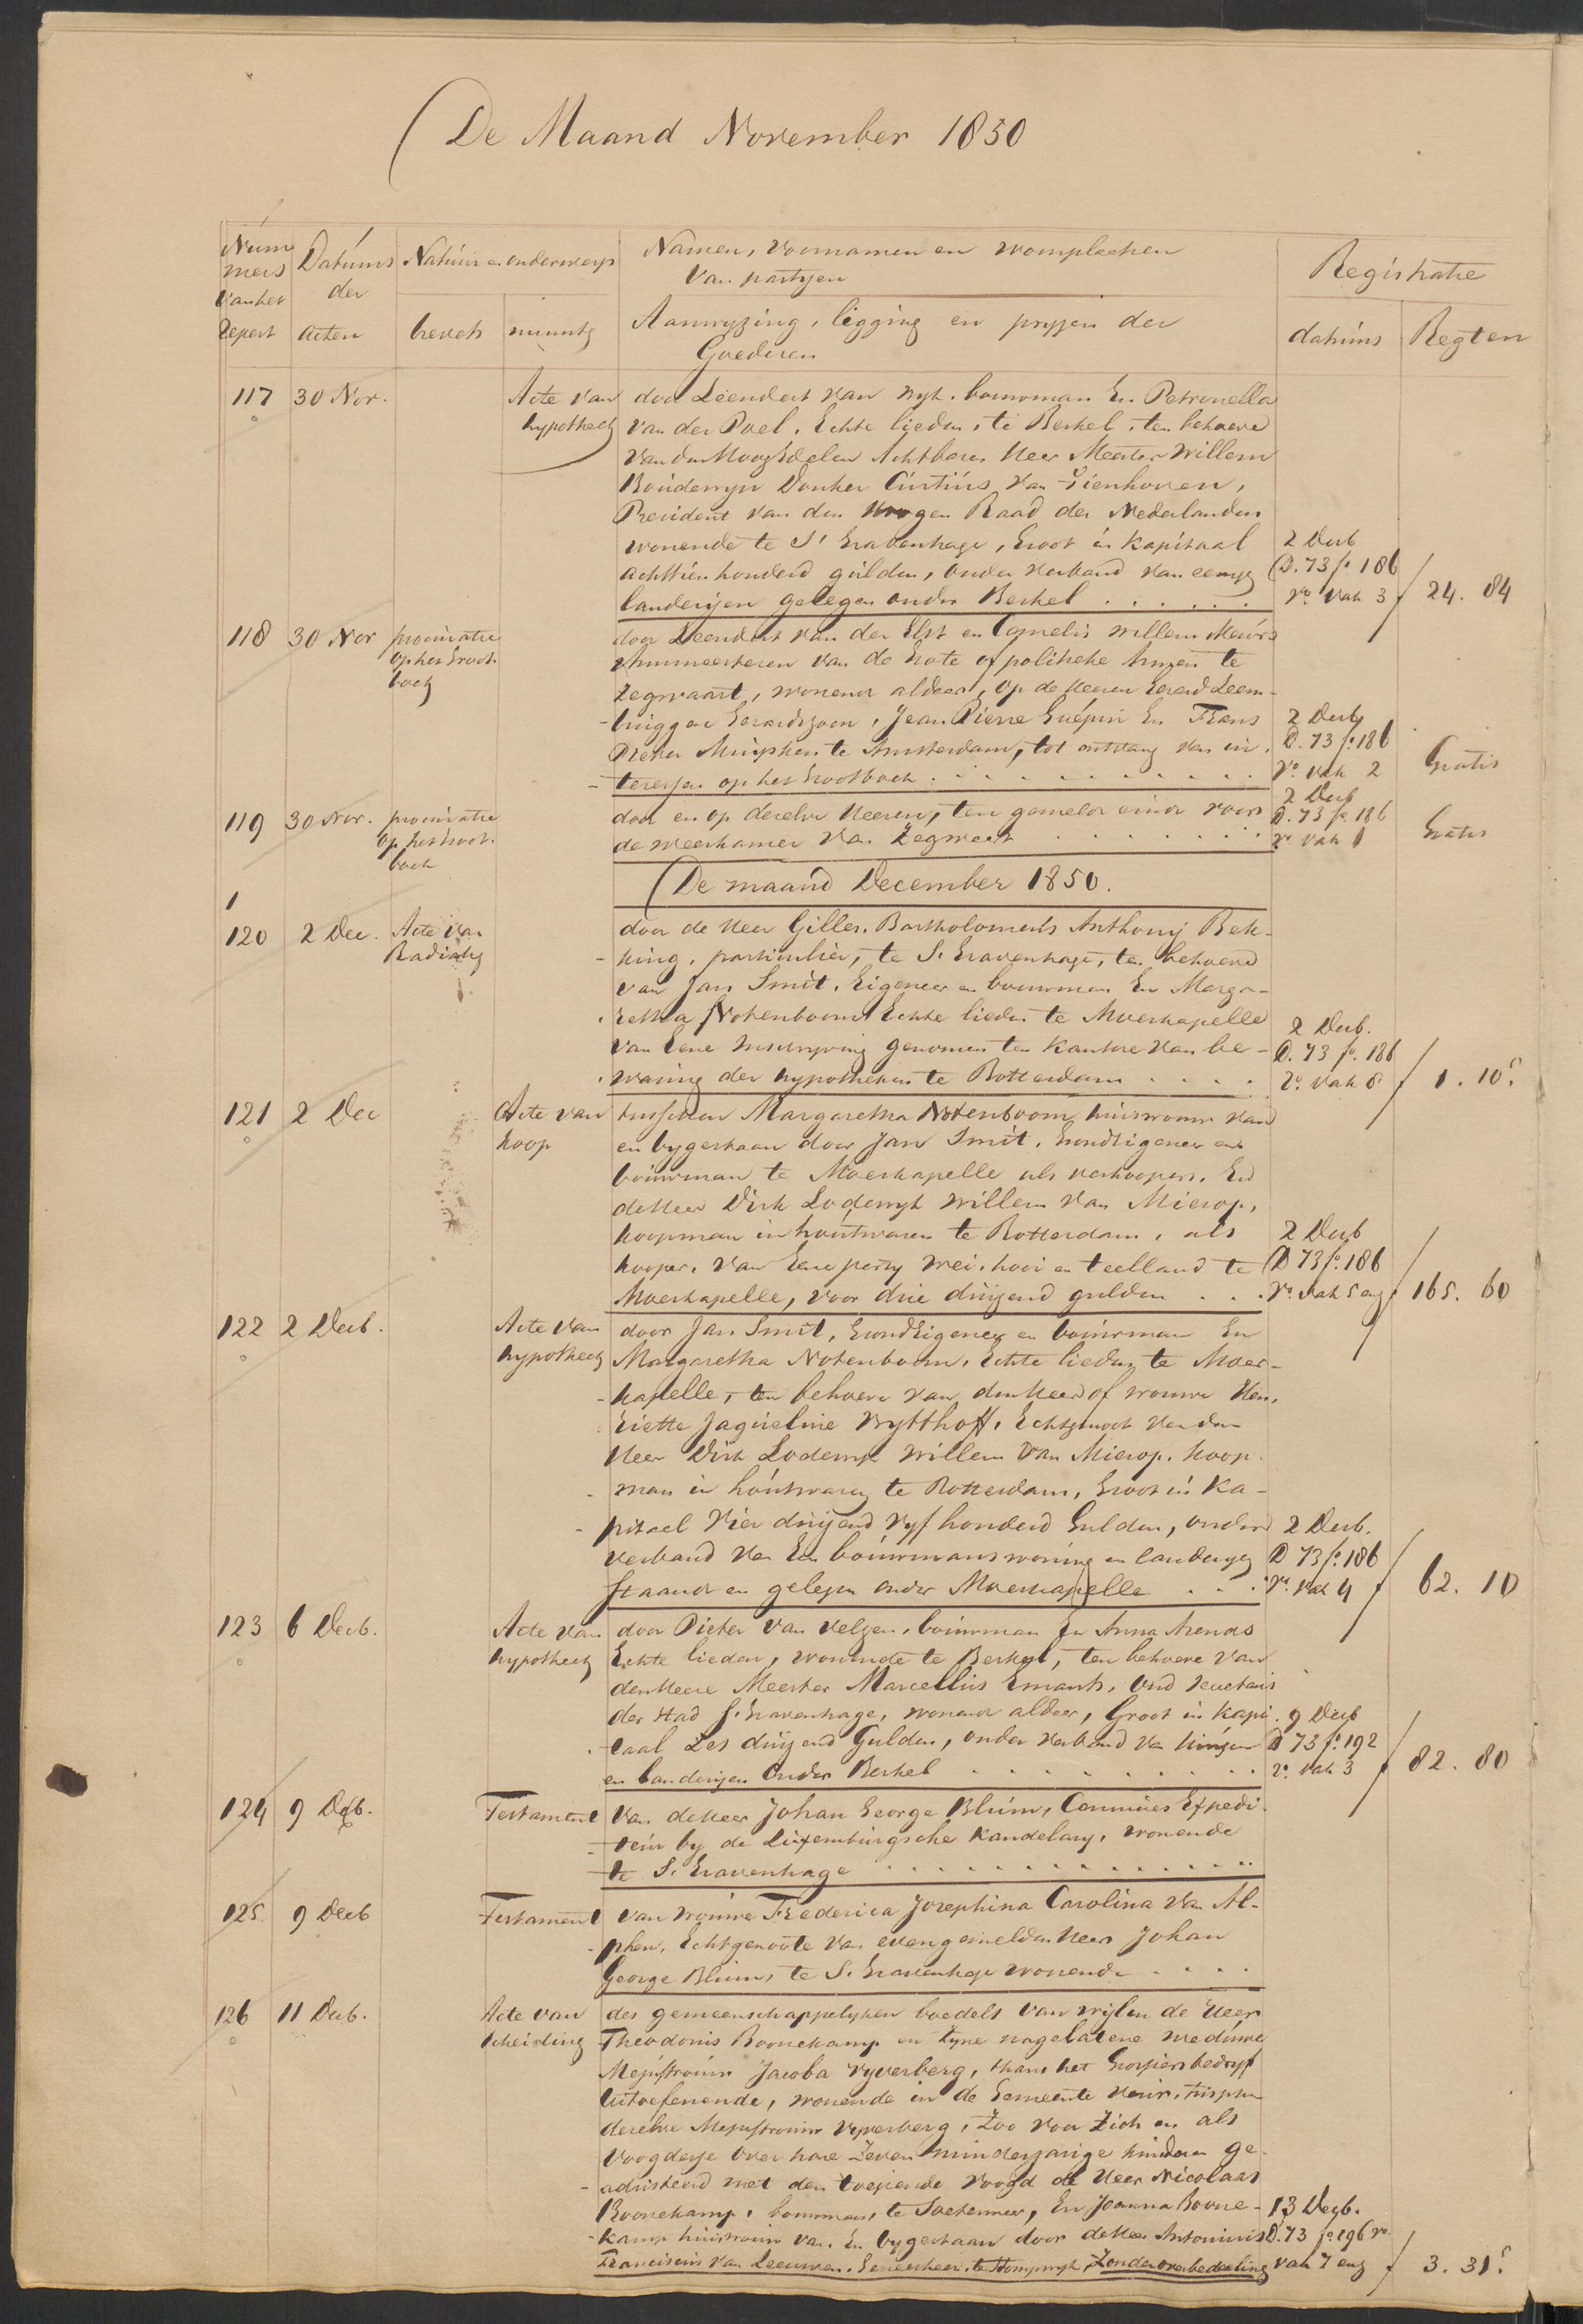 De Maand November 1850
Num
mers
van het
Repert
Datums
der
acten
Natuur en onderwerp
brevets
minuuts
Namen, Voornamen en woonplaatsen
Van partyen
Aanwyzing, ligging en pryzen der
Goederen
Registratie
datums
Regten
117 30 Nov.
Acte van
hypotheek
door Leendert van Wyk, bouwman En Petronella
van der Poel, Echte lieden, te Berkel, ten behoeve
van den Hoog Edelen Achtbaren Heer Meester Willem
Boudewyn Donker Curtius van Tienhoven,
President van den Hoogen Raad der Nederlanden
wonende te S' Gravenhage, Groot in Kapitaal
achttien honderd gulden, onder verband van eenige
landeryen gelegen onder Berkel . . . . . .
2 Decb
D. 73 fo. 186
ro. vak 3
24. 84
118 30 Nov procuratie
op het Groot-
boek
door Leendert van der Elst en Cornelis Willem
Armmeesteren van de Grote of politieke Armen te
Zegwaart, wonend aldaar, op de Heeren Gerard Leem-
brugge Gerardszoon, Jean Pierre Guépin En Frans
Pieter te Amsterdam, tot ontvang van in
teressen op het Grootboek . . . . . . . . . .
2 Decb
D. 73 fo. 186
ro. vak 2
Gratis
119 30 Nov. procuratie
op het Groot-
boek
door en op dezelve Heeren, ten gemelde einde voor
de weeskamer van Zegwaart . . . . . . .
2 Decb
D. 73 fo. 186
ro. vak 1
Gratis
De maand December 1850.
120 2 Dec. Acte van
Radiatie
door de Heer Gilles Bartholomeus Anthony Bek-
king, particulier, te S. Gravenhage, ten behoeve
van Jan Smit, Eigeneer en bouwman En Marga-
retha Notenboom Echte lieden te Moerkapelle
van Eene Inschryving genomen ten Kantore van be-
waring der hypotheken te Rotterdam . . . .
2 Decb.
D. 73 fo. 186
ro. vak 6
1. 10.5
121 2 Dec
Acte van
koop
tusschen Margaretha Notenboom, huisvrouw van
en bygestaan door Jan Smit, Grondeigener en
bouwman te Moerkapelle als verkoopers, En
de Heer Dirk Lodewyk Willem van Mierop,
koopman in houtwaren te Rotterdam, als
kooper, van Eene party wei, hooi en teelland te
Moerkapelle, voor drie duizend gulden . . .
2 Decb
D 73 fo. 186
ro. vak 5 enz
165. 60
122 2 Decb.
Acte van
hypotheek
door Jan Smit, Grondeigener en bouwman En
Margaretha Notenboom, Echte lieden te Moer-
kapelle, ten behoeve van den Heer of vrouwe Hen-
riette Jaqueline Wytthoff, Echtgenoot van den
Heer Dirk Lodewyk Willem van Mierop, koop-
man in houtwaren te Rotterdam, Groot in Ka-
pitael Vier duizend Vyf honderd Gulden, onder
verband van Een bouwmanswoning en landeryen
staande en gelegen onder Moerkapelle . . .
2 Decb.
D 73 fo. 186
ro. vak 4
62. 10
123 6 Decb.
Acte van
hypotheek
door Pieter van Velzen, bouwman En Anna Arends
Echte lieden, wonende te Berkel, ten behoeve van
den Heere Meester Marcellus Emants, Oud Secretaris
der Stad S. Gravenhage, wonend aldaar, Groot in Kapi-
taal Zes duizend Gulden, onder verband van huizen
en landeryen Onder Berkel . . . . . . . .
9 Decb
D 73 fo. 192
ro. vak 3
82. 80
124 9 Decb.
Testament
Van de Heer Johan George Bluim, Commies Expedi-
teur by de Luxemburgsche Kanselary, wonende
te S. Gravenhage . . . . . . . . . . . .
125 9 Decb
Testament
van vrouwe Frederica Josephina Carolina van Al-
phen, Echtgenoote van evengemelden Heer Johan
George Bluim, te S. Gravenhage wonende . . . .
126 11 Decb.
Acte van
Scheiding
des gemeenschappelyken boedels van wylen de Heer
Theodorus Boonekamp en zyne nagelatene weduwe
Mejuffrouw Jacoba Vyverberg, thans het Grospiersbedryf
uitoefenende, wonende in de Gemeente Veur, tusschen
dezelve Mejuffrouw Vyverberg, Zoo voor Zich en als
voogdesse over hare Zeven minderjarige kinderen ge-
adsisteerd met den toeziende Voogd de Heer Nicolaas
Boonekamp, bouwman, te Soetermeer, En Joanna Boone-
kamp huisvrouw van, En bygestaan door de Heer Antonius
Franciscus van Leeuwen, Geneesheer, te Stompwyk, Zonder overbedeeling
13 Decb.
D. 73 fo. 196 vo.
vak 7 enz
3. 31.5